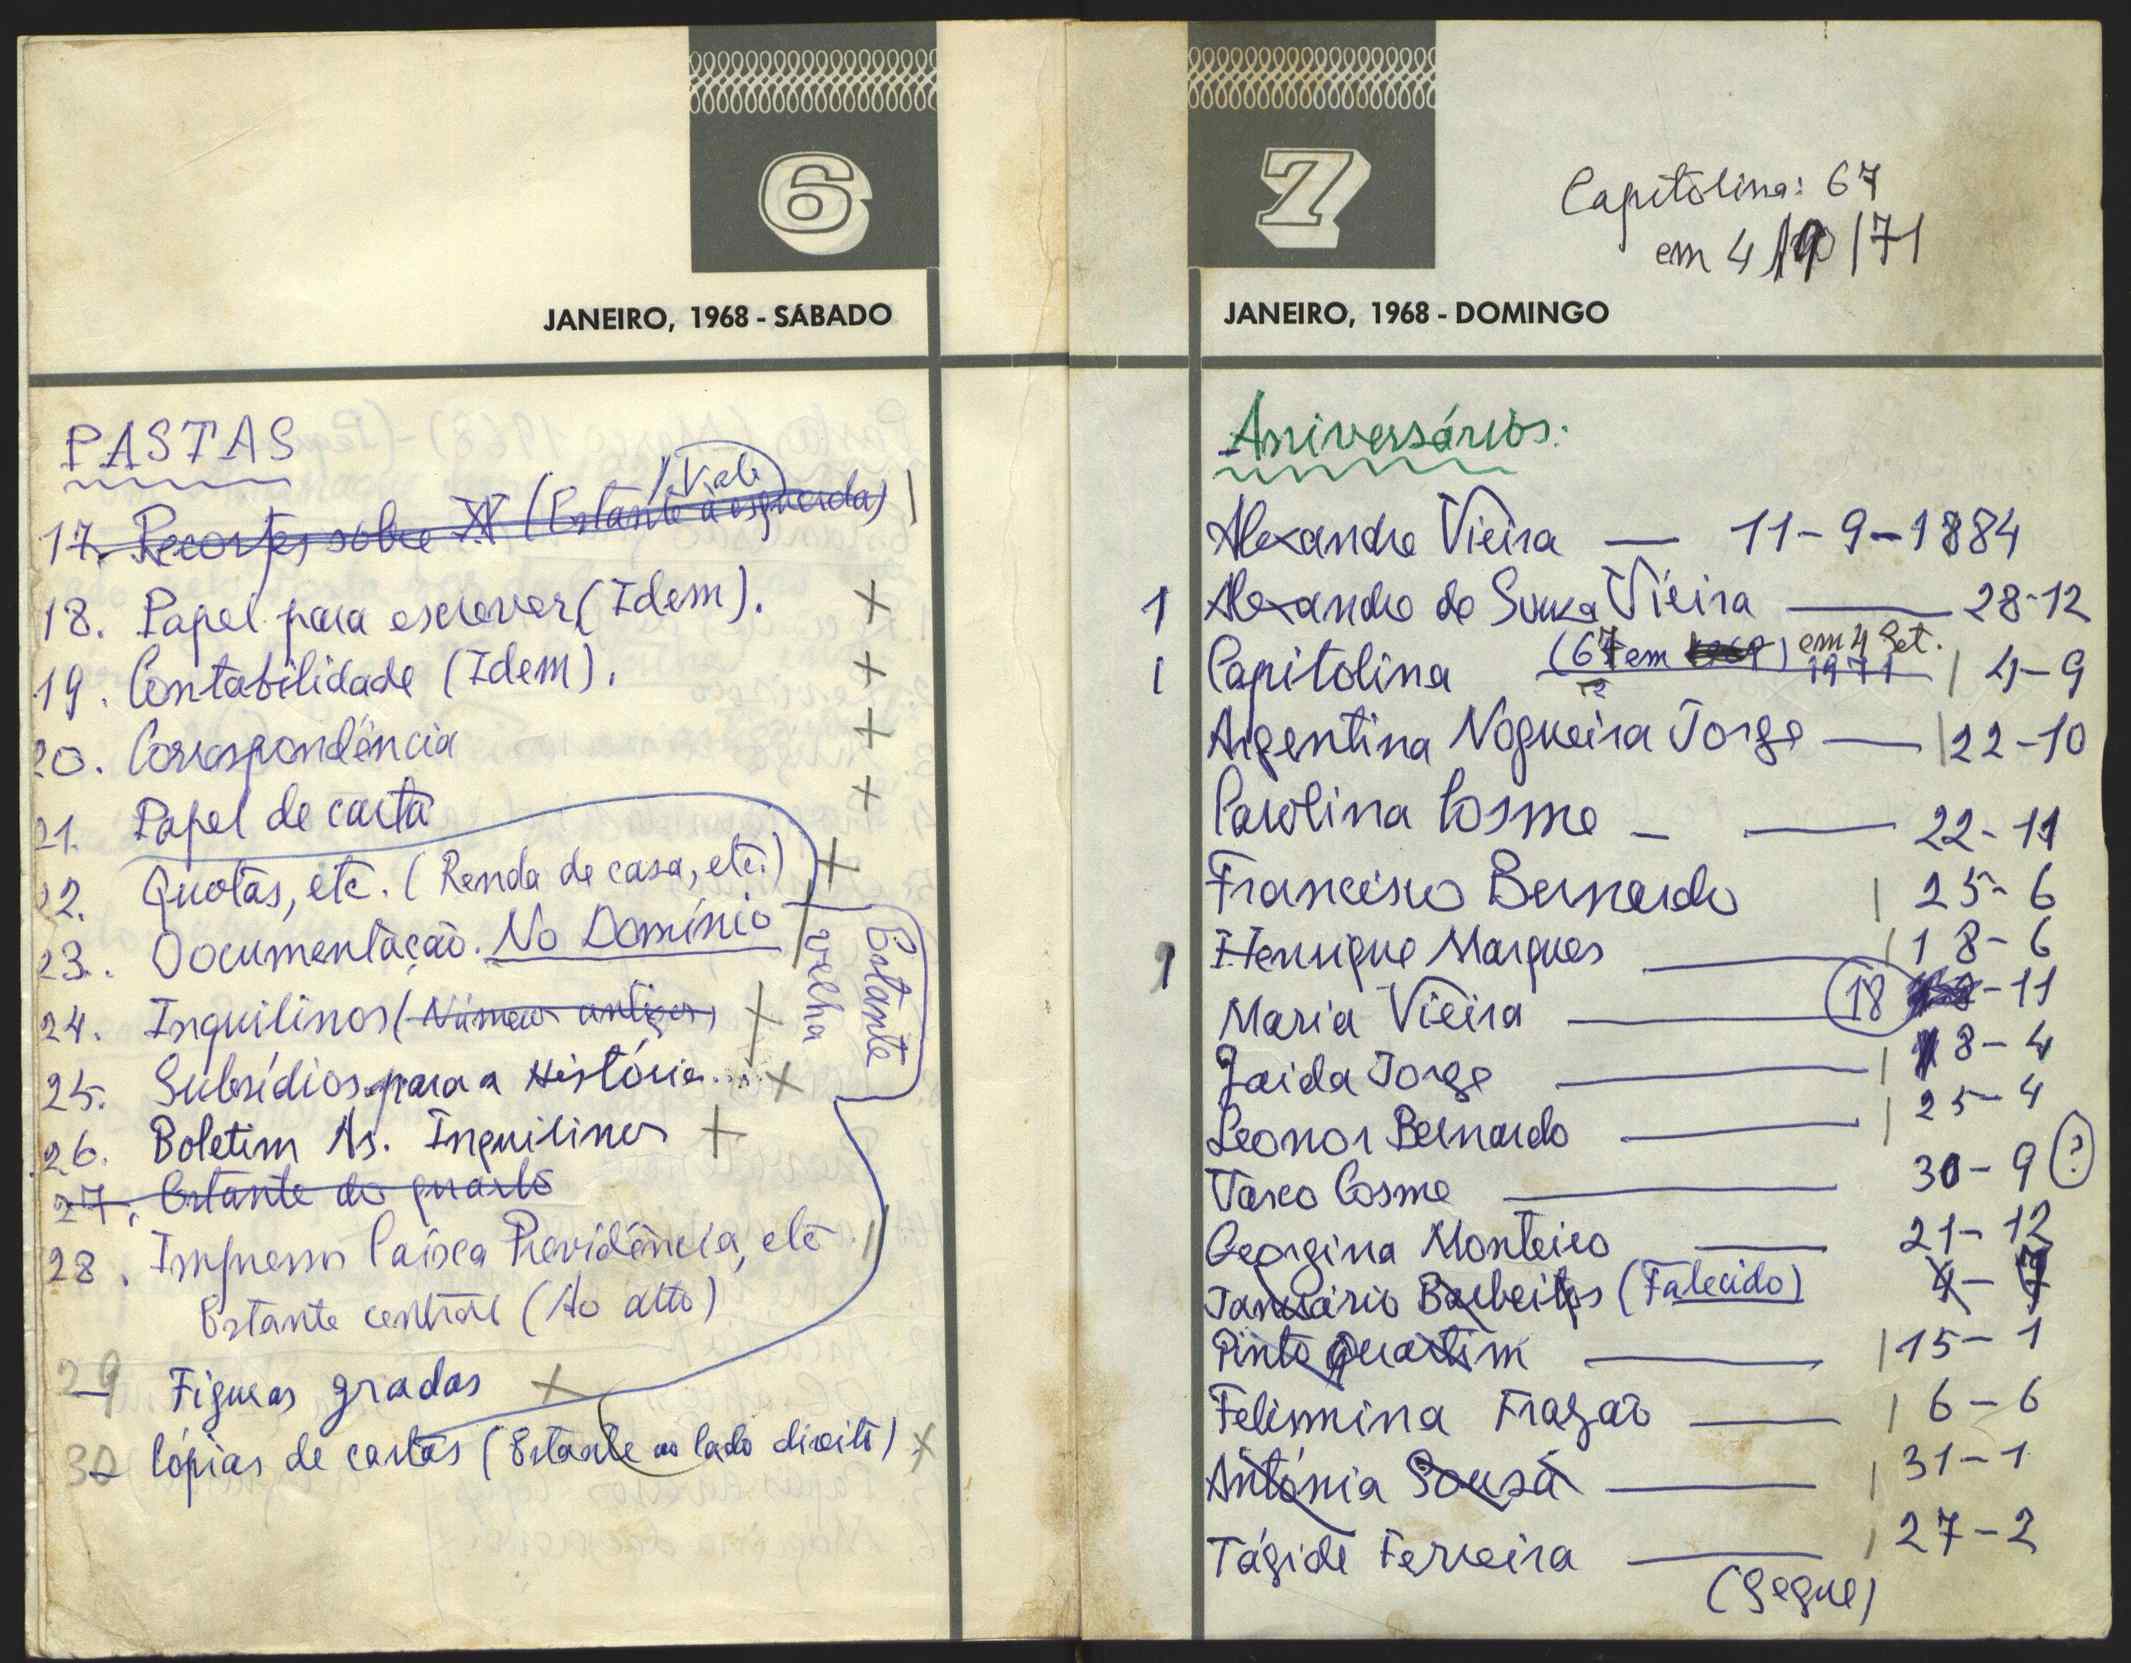 6
JANEIRO, 1968 - SÁBADO
PASTAS
Vale
17. Recortes sobre (Estante à esquerda)
18. Papel para escrever (Idem).
19. Contabilidade (Idem).
20. Correspondência
21. Papel de carta
22. Quotas, etc. (Renda de casa, etc.)
23. Documentação. No Domínio
24. Inquilinos (Números antigos)
25. Subsídios para a História...
26. Boletim As. Inquilinos
27. Estante do quarto
28. Impressos Caixa Previdência, etc
Estante central (Ao alto)
29 Figuras gradas
30 Cópias de cartas (Estante ao lado direito)
Estante
velha
7
JANEIRO, 1968 - DOMINGO
Capitolina: 67
em 4 /71
Aniversários:
Alexandre Vieira — 11-9-1884
1 Alexandre de Sousa Vieira — 28-12
1 Capitolina (67 em 1969) em 4 Set. 1971 | 4-9
Argentina Nogueira Jorge — | 22-10
Carolina Cosme — — 22-11
Francisco Bernardo | 25-6
1 Henrique Marques — | 18-6
Maria Vieira — 18 -11
Zaida Jorge — | 8-4
Leonor Bernardo — | 25-4
Vasco Cosme — 30-9 ?
Georgina Monteiro — 21-12
Januário Barbeitos (Falecido) 4-7
Pinto Quartim — | 15-1
Felismina Frazão — | 6-6
Antónia Sousa — | 31-1
Tágide Ferreira — | 27-2
(Segue)